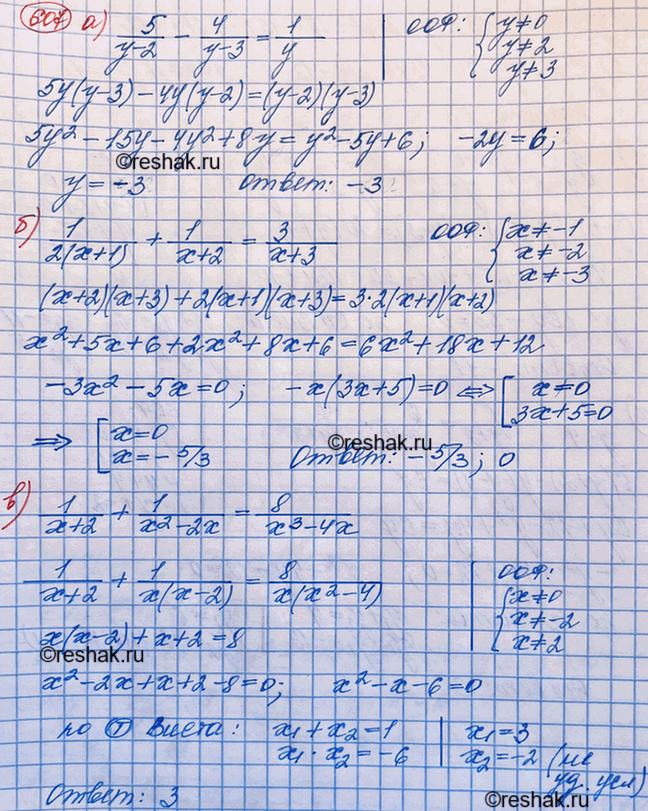 607 а) 5/(y-2) - 4/(y-3) = 1/y | ООФ: { y≠0
y≠2
y≠3
5y(y-3)-4y(y-2)=(y-2)(y-3)
5y²-15y-4y²+8y=y²-5y+6; -2y=6;
©reshak.ru
y=-3 Ответ: -3
б) 1/(2(x+1)) + 1/(x+2) = 3/(x+3) ООФ: { x≠-1
x≠-2
x≠-3
(x+2)(x+3)+2(x+1)(x+3)=3·2(x+1)(x+2)
x²+5x+6+2x²+8x+6=6x²+18x+12
-3x²-5x=0; -x(3x+5)=0 ⟺ [ x=0
3x+5=0
⟹ [ x=0
x=-5/3 Ответ: -5/3; 0
©reshak.ru
в) 1/(x+2) + 1/(x²-2x) = 8/(x³-4x)
1/(x+2) + 1/(x(x-2)) = 8/(x(x²-4)) | ООФ:
{ x≠0
x≠-2
x≠2
x(x-2)+x+2=8
©reshak.ru
x²-2x+x+2-8=0; x²-x-6=0
по Т Виета: x₁+x₂=1 | x₁=3
x₁·x₂=-6 | x₂=-2 (не
уд. усл)
Ответ: 3